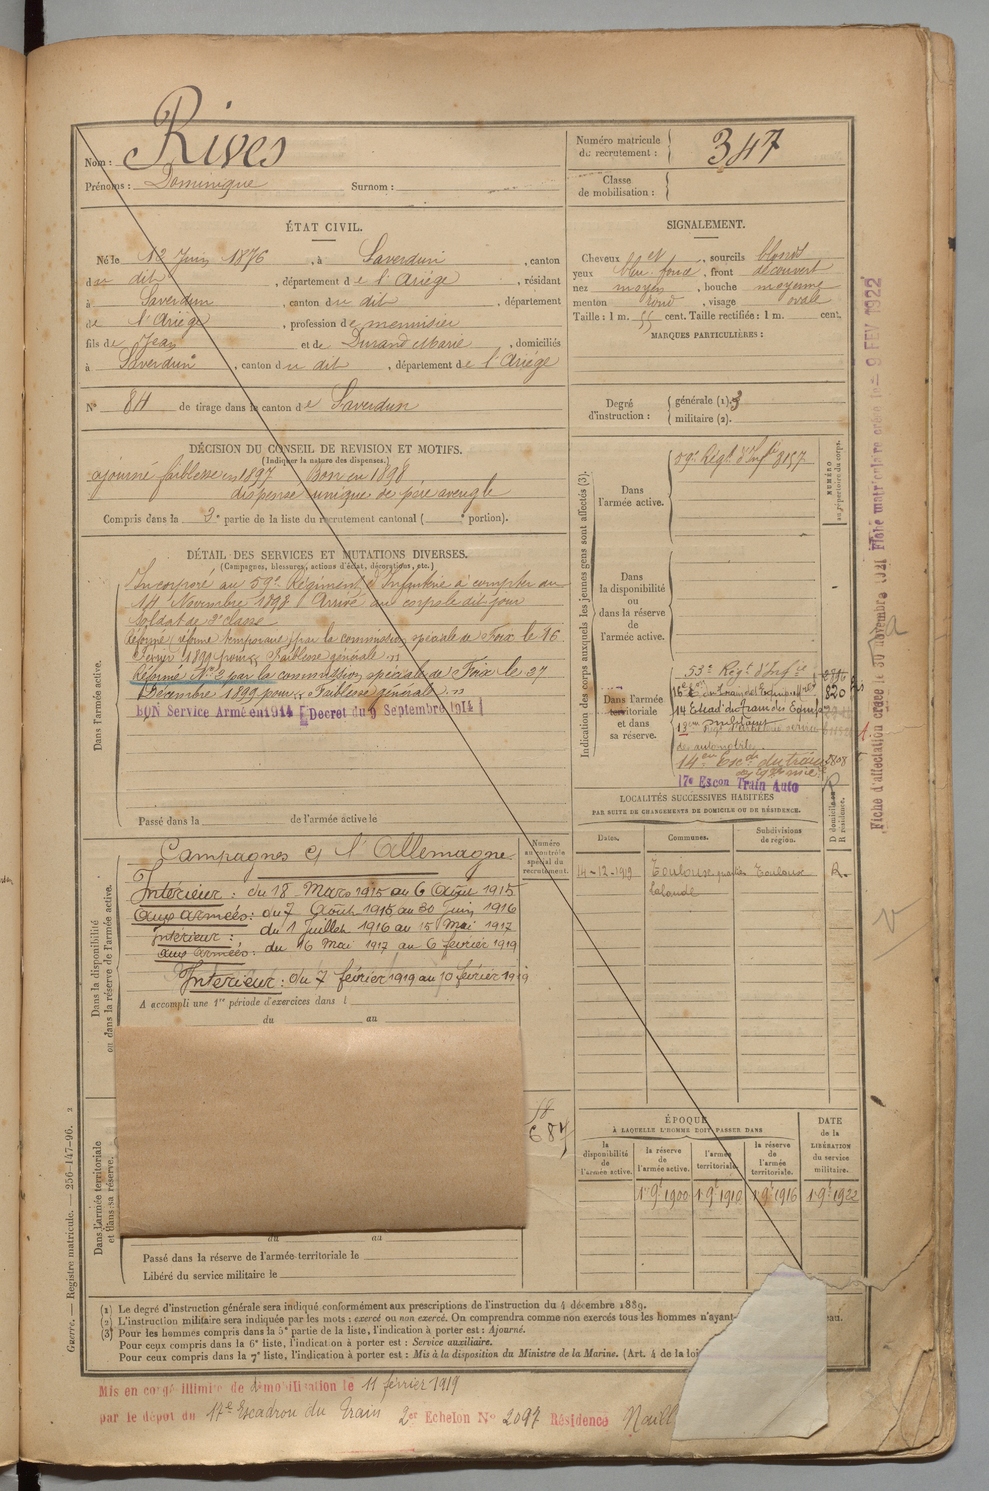 Nom : Rives
Prénoms : Dominique Surnom :
Numéro matricule du recrutement : 347
Classe de mobilisation :
ÉTAT CIVIL.
Né le 12 Juin 1876, à Saverdun, canton
du dit, département de l'Ariége, résidant
à Saverdun, canton du dit, département
de l'Ariége, profession de menuisier
fils de Jean et de Durand Marie, domiciliés
à Saverdun, canton du dit, département de l'Ariége
N° 84 de tirage dans le canton de Saverdun
SIGNALEMENT.
Cheveux et, sourcils blonds
yeux bleu foncé, front découvert
nez moyen, bouche moyenne
menton rond, visage ovale
Taille : 1 m. 55 cent. Taille rectifiée : 1 m. cent.
MARQUES PARTICULIÈRES :
Degré d'instruction :
générale (1). 3
militaire (2).
DÉCISION DU CONSEIL DE REVISION ET MOTIFS.
(Indiquer la nature des dispenses.)
ajourné faiblesse en 1897 Bon en 1898
dispensé unique de père aveugle
Compris dans la 3e partie de la liste du recrutement cantonal ( e portion).
DÉTAIL DES SERVICES ET MUTATIONS DIVERSES.
(Campagnes, blessures, actions d'éclat, décorations, etc.)
Dans l'armée active.
Incorporé au 59e Régiment d'Infanterie à compter du
14 Novembre 1898 Arrivé au corps le dit jour
Soldat de 2e classe
Réformé (réforme temporaire) par la commission spéciale de Foix le 16
Février 1899 pour « Faiblesse générale »
Réformé N° 2 par la commission spéciale de Foix le 27
Décembre 1899 pour « Faiblesse générale »
BON Service Armé en 1914 Decret du 9 Septembre 1914
Passé dans la de l'armée active le
Indication des corps auxquels les jeunes gens sont affectés (3).
NUMÉRO au répertoire du corps.
Dans l'armée active.
59e Régt d'Infie 3157
Dans la disponibilité ou dans la réserve de l'armée active.
Dans l'armée territoriale et dans sa réserve.
53e Régt d'Infie
16e Eon du Train des Equip 820
14 Escad. du Train des Equip
des automobiles
14e Esc. du train 2808
17e Escon Train Auto
LOCALITÉS SUCCESSIVES HABITÉES
PAR SUITE DE CHANGEMENTS DE DOMICILE OU DE RÉSIDENCE.
Dates. Communes. Subdivisions de région. D domicile ou R résidence.
14-12-1919 Toulouse Toulouse R.
Lalande
Dans la disponibilité ou dans la réserve de l'armée active.
Numéro au contrôle spécial du recrutement.
Campagnes c/ l'Allemagne
Intérieur : du 18 Mars 1915 au 6 Août 1915
aux armées : du 7 Août 1915 au 30 Juin 1916
Intérieur : du 1 Juillet 1916 au 15 Mai 1917
aux armées : du 16 Mai 1917 au 6 février 1919
Intérieur : du 7 février 1919 au 10 février 1919
A accompli une 1re période d'exercices dans l
du au
Dans l'armée territoriale et dans sa réserve.
687
du au
Passé dans la réserve de l'armée territoriale le
Libéré du service militaire le
ÉPOQUE
À LAQUELLE L'HOMME DOIT PASSER DANS
la disponibilité de l'armée active.
la réserve de l'armée active.
l'armée territoriale.
la réserve de l'armée territoriale.
DATE de la LIBÉRATION du service militaire.
1er 9e 1900 1er 9e 1910 1er 9e 1916 1er 9e 1922
(1) Le degré d'instruction générale sera indiqué conformément aux prescriptions de l'instruction du 4 décembre 1889.
(2) L'instruction militaire sera indiquée par les mots : exercé ou non exercé. On comprendra comme non exercés tous les hommes n'ayant
(3) Pour les hommes compris dans la 5e partie de la liste, l'indication à porter est : Ajourné.
Pour ceux compris dans la 6e liste, l'indication à porter est : Service auxiliaire.
Pour ceux compris dans la 7e liste, l'indication à porter est : Mis à la disposition du Ministre de la Marine. (Art. 4 de la loi
Mis en congé illimité de démobilisation le 11 février 1919
par le dépôt du 17e Escadron du Train 2er Echelon N° 2097 Résidence
Guerre. — Registre matricule. — 256-147-96. 2
Fiche d'affectation créée le 30 novembre 1921 Fiche matriculaire créée le 9 FEV 1922